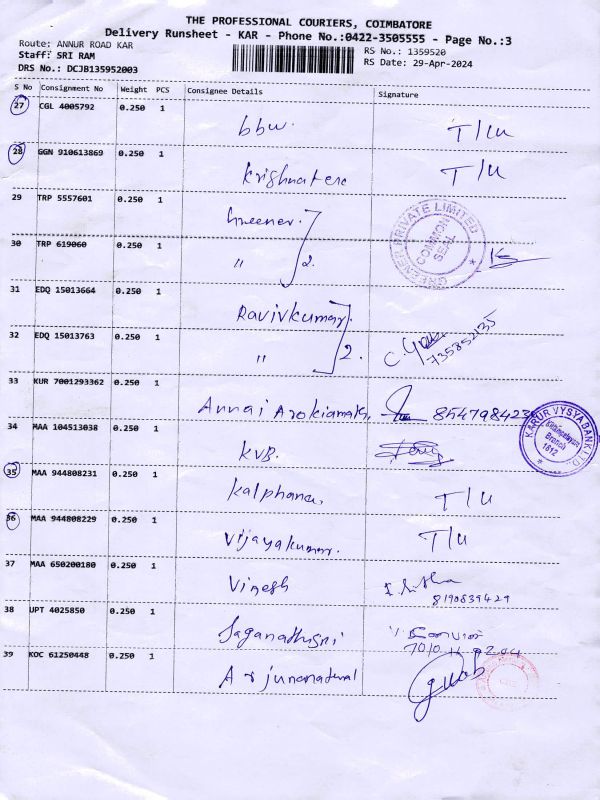 THE PROFESSIONAL COURIERS, COIMBATORE
Delivery Runsheet - KAR - Phone No.:0422-3505555 - Page No.:3
Route: ANNUR ROAD KAR
RS No.: 1359520
Staff: SRI RAM
RS Date: 29-Apr-2024
DRS No.: DCJB135952003
S No Consignment No Weight PCS Consignee Details Signature
27 CGL 4005792 0.250 1 bbw. T/U
28 GGN 910613869 0.250 1 T/U
29 TRP 5557601 0.250 1 Greener.
GREENER PRIVATE LIMITED
COMMON SEAL
30 TRP 619060 0.250 1 " 2.
31 EDQ 15013664 0.250 1 Ravivkumar
32 EDQ 15013763 0.250 1 " 2.
33 KUR 7001293362 0.250 1 Annai
34 MAA 104513038 0.250 1 KVB.
KARUR VYSYA BANK LTD
Branch
1812
35 MAA 944808231 0.250 1 Kalphana, T/U
36 MAA 944808229 0.250 1 Vijayakumar. T/U
37 MAA 650200180 0.250 1 Vinesh
8190839429
38 UPT 4025850 0.250 1
39 KOC 61250448 0.250 1